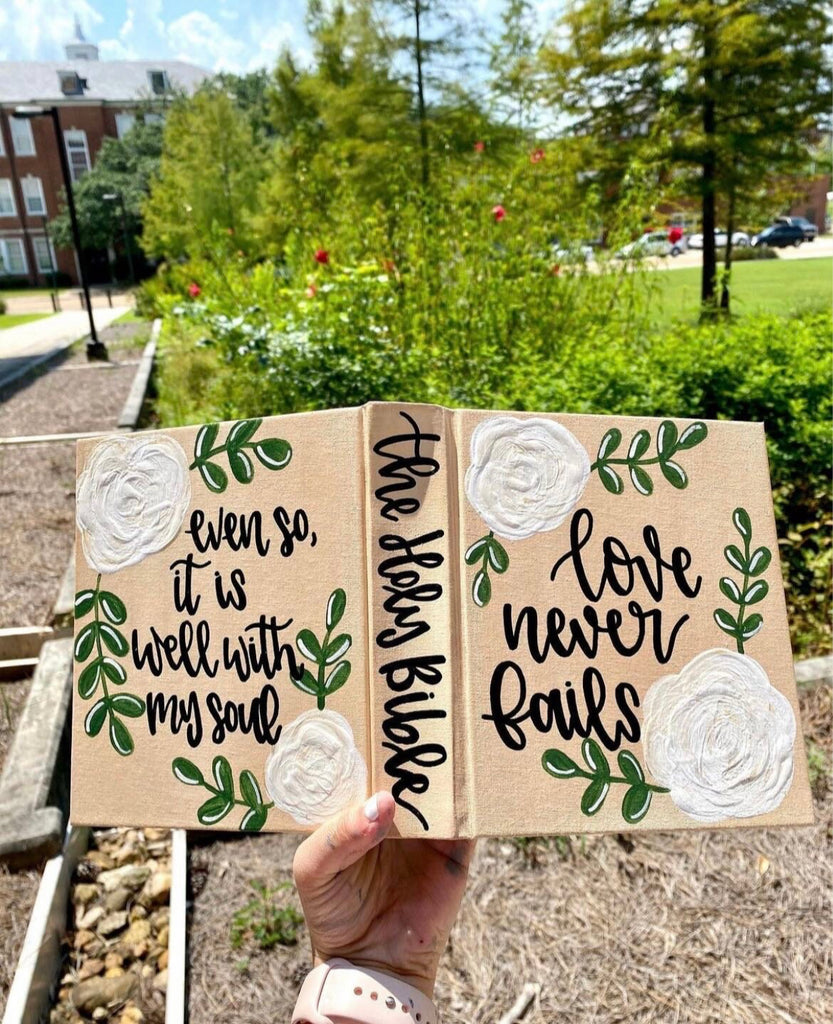 even so,
it is
well with
my soul
the Holy Bible
love
never
fails